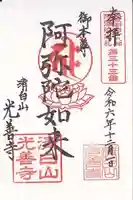 奉拝
第三十三番
令和六年十一月一日
御本尊
阿弥陀如来
清白山
光善寺
清白山
光善寺